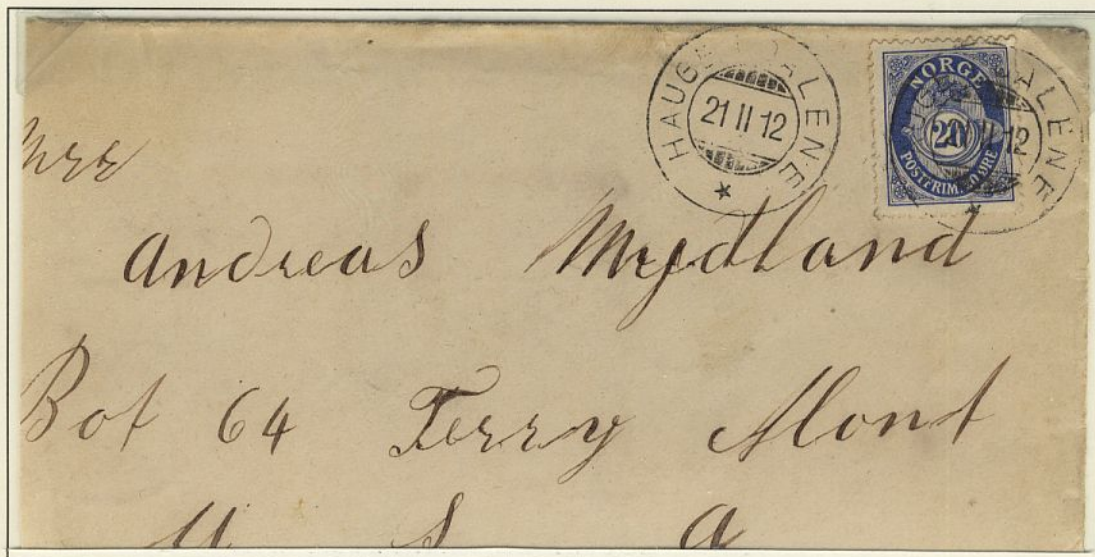 HAUGE DALENE
21 II 12
NORGE
20
POSTFRIM. 20 ØRE
ALENE
II 12
Mrr
Andreas Mydland
Box 64 Terry Mont
U S A